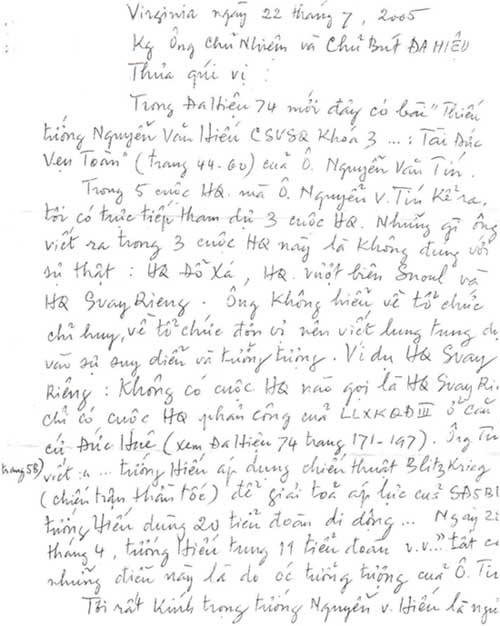 Virginia ngày 22 tháng 7, 2005
Kg Ông Chủ Nhiệm và Chủ Bút ĐA HIỆU
Thưa quí vị :
Trong Đa Hiệu 74 mới đây có bài "Thiếu
tướng Nguyễn Văn Hiếu CSVSQ Khóa 3 ... : Tài Đức
Vẹn Toàn" (trang 44-60) của Ô. Nguyễn Văn Tín.
Trong 5 cuộc HQ. mà Ô. Nguyễn V. Tín kể ra,
tôi có trực tiếp tham dự 3 cuộc HQ. Những gì ông
viết ra trong 3 cuộc HQ này là không đúng với
sự thật : HQ Đỗ Xá, HQ. vượt biên Snoul và
HQ Svay Rieng. Ông không hiểu về tổ chức
chỉ huy, về tổ chức đơn vị nên viết lung tung dự
vào sự suy diễn và tưởng tượng. Ví dụ HQ Svay
Riêng : Không có cuộc HQ nào gọi là HQ Svay Rie
chỉ có cuộc HQ phản công của LLXKQĐIII ở căn
cứ Đức Huê (xem Đa Hiệu 74 trang 171-197). Ông Tí
(trang 58) viết : "... tướng Hiếu áp dụng chiến thuật Blitzkrieg
(chiến trận thần tốc) để giải tỏa áp lực của SĐ5B
tướng Hiếu dùng 20 tiểu đoàn di động ... Ngày 2
tháng 4, tướng Hiếu tung 11 tiểu đoàn v.v..." tất c
những điều này là do óc tưởng tượng của Ô. Tí
Tôi rất kính trọng tướng Nguyễn v. Hiếu là ngư